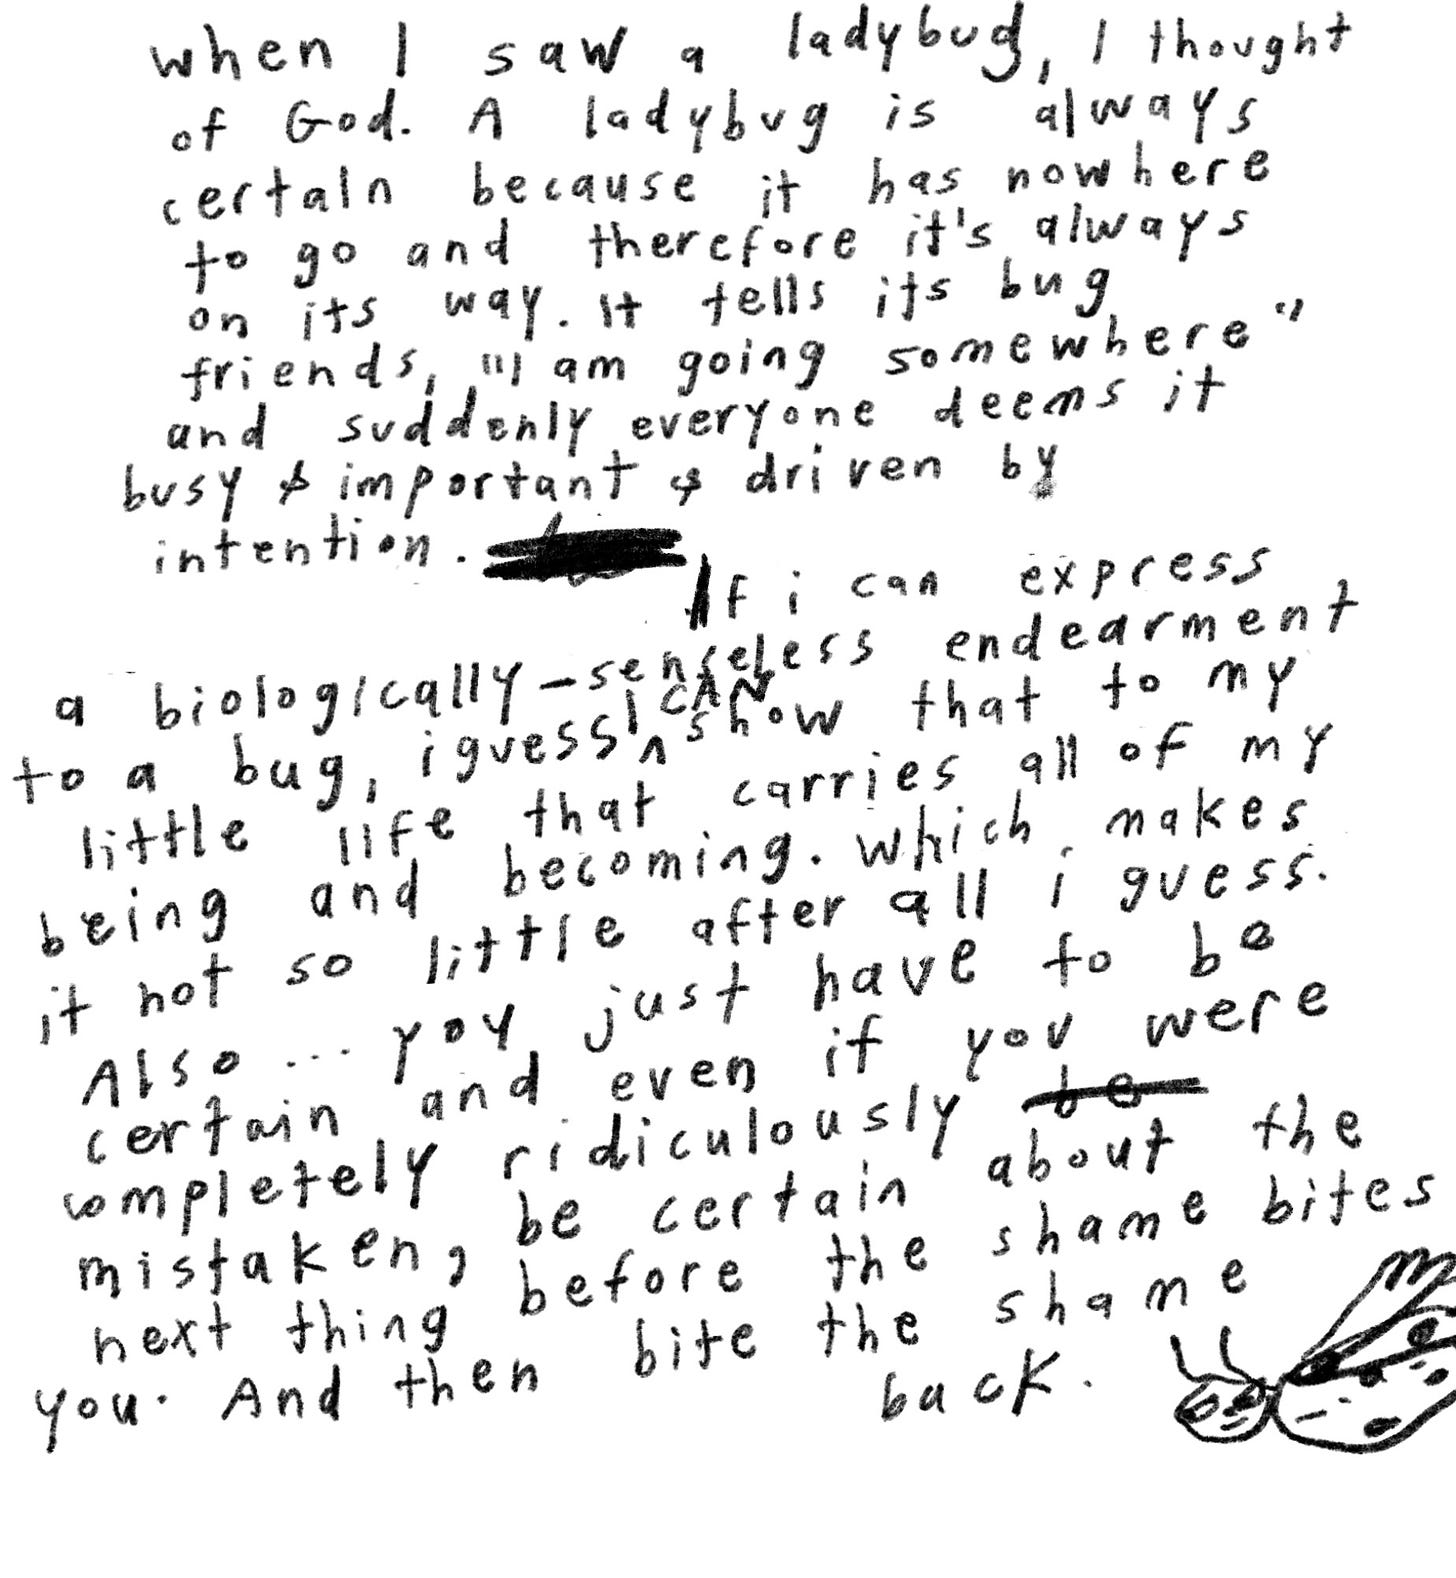 when I saw a ladybug, I thought
of God. A ladybug is always
certain because it has nowhere
to go and therefore it's always
on its way. It tells its bug
friends, "I am going somewhere"
and suddenly everyone deems it
busy & important & driven by
intention.
If i can express
a biologically-senseless endearment
to a bug, i guess I CAN show that to my
little life that carries all of my
being and becoming. Which makes
it not so little after all i guess.
Also... you just have to be
certain and even if you were
completely ridiculously be
mistaken, be certain about the
next thing before the shame bites
you. And then bite the shame
back.